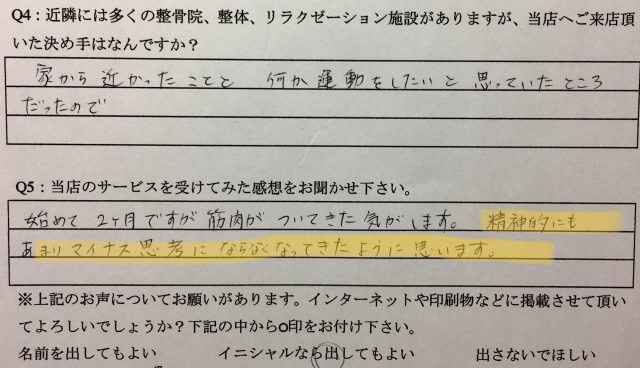 Q4：近隣には多くの整骨院、整体、リラクゼーション施設がありますが、当店へご来店頂
いた決め手はなんですか？
家から近かったことと 何か運動をしたいと思っていたところ
だったので
Q5：当店のサービスを受けてみた感想をお聞かせ下さい。
始めて2ヶ月ですが筋肉がついてきた気がします。精神的にも
あまりマイナス思考にならなくなってきたように思います。
※上記のお声についてお願いがあります。インターネットや印刷物などに掲載させて頂い
てよろしいでしょうか？下記の中から○印をお付け下さい。
名前を出してもよい イニシャルなら出してもよい 出さないでほしい